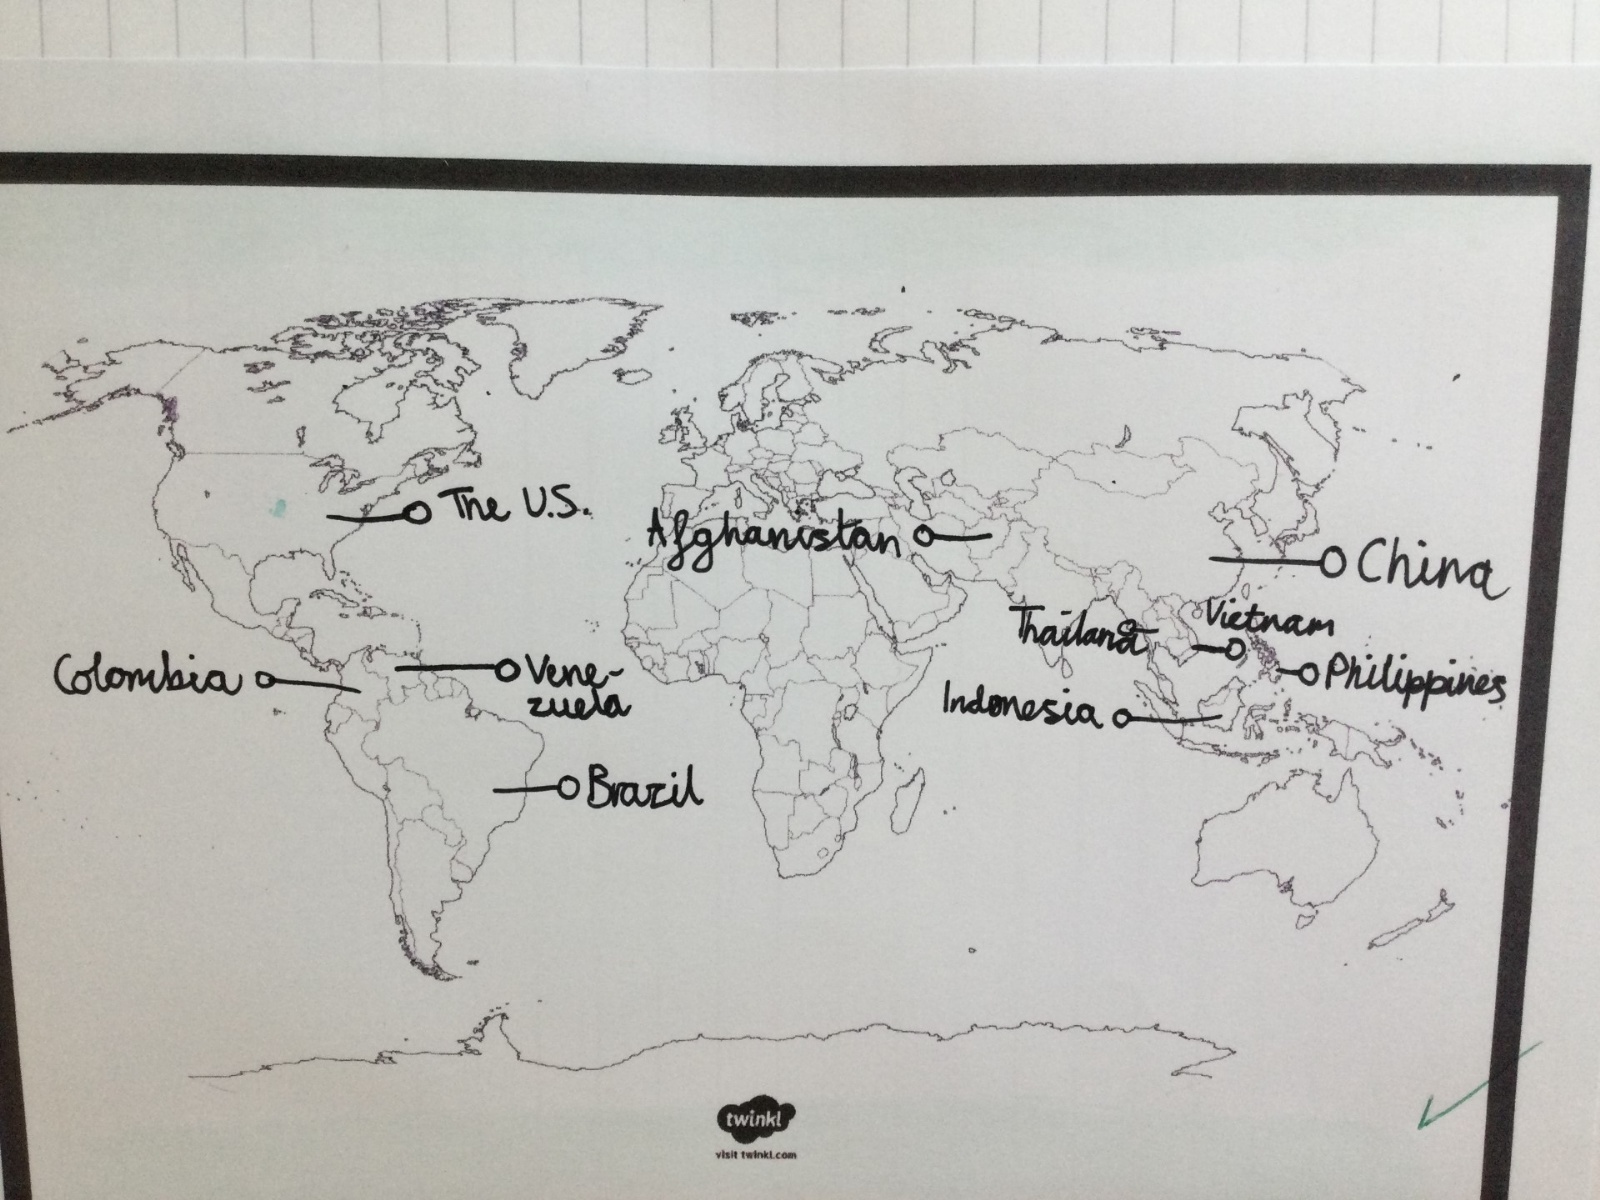 The U.S.
Afghanistan
China
Thailand
Vietnam
Colombia
Vene-
zuela
Philippines
Indonesia
Brazil
twinkl
visit twinkl.com